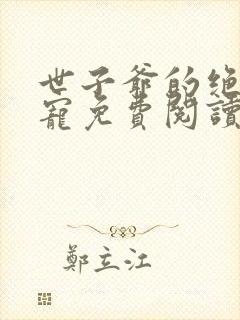 世子爷的绝
寵免費閱讀
鄭立江